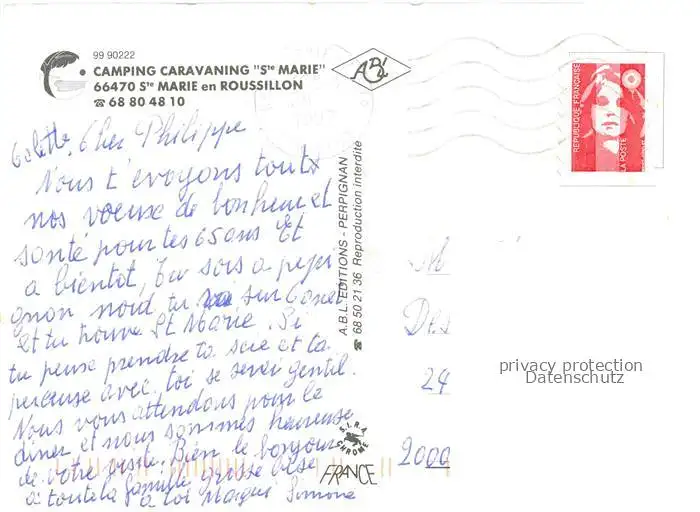 99 90222
CAMPING CARAVANING "Ste MARIE"
66470 Ste MARIE en ROUSSILLON
☎ 68 80 48 10
Colette, Cher Philippe
Nous t'evoyons toutx
nos voeuse de bonheur et
santé pour tes 65 ans Et
a bientot, tu sors a perpi
gnon nord tu vai sur Canet
et tu trouve St Marie. Si
tu peuse prendre ta scie et ta
perceuse avec toi se serai gentil.
Nous vous attendons pour le
diner et nous sommes heureuse
de votre visite. Bien le bonjour
a toute la famille grosse bise
a toi Simone
A.B.L. EDITIONS - PERPIGNAN
☎ 68 50 21 36 Reproduction interdite
ABL
REPUBLIQUE FRANÇAISE
LA POSTE
M
Des
24
2000
privacy protection
Datenschutz
CHROME
FRANCE